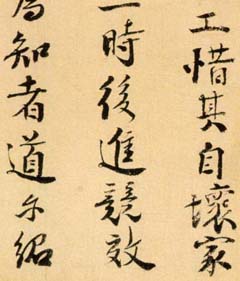 工惜其自壞家
一時後進競效
為知者道尔紹